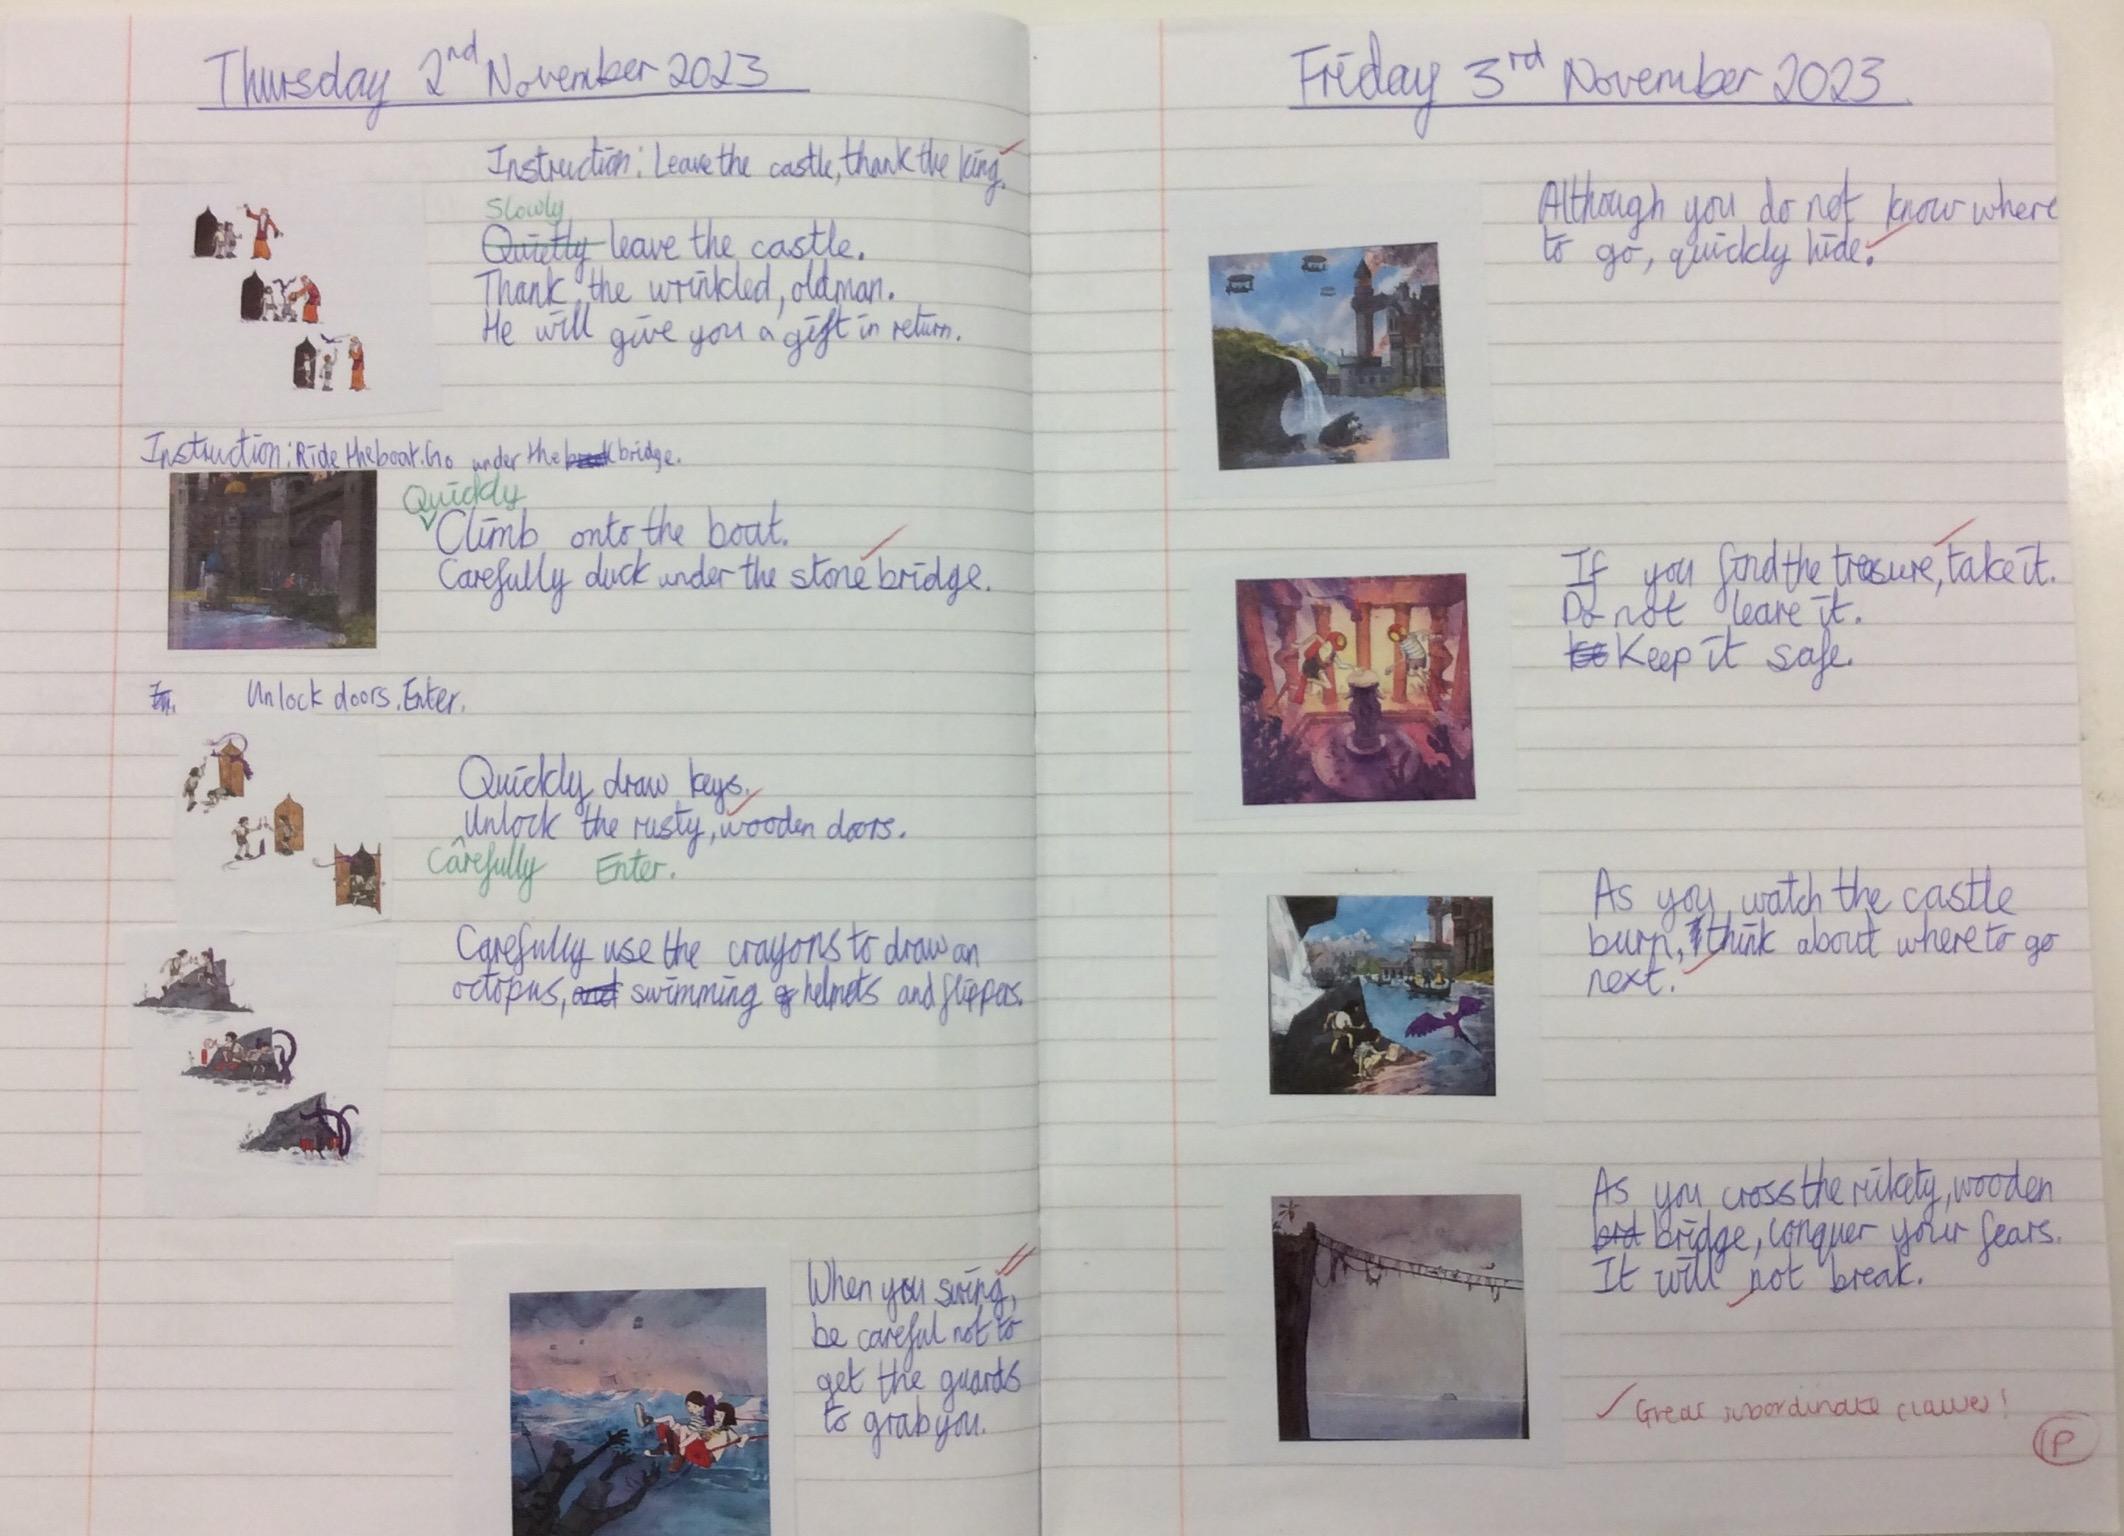 Thursday 2nd November 2023
Instruction: Leave the castle, thank the king.
Slowly
Quietly leave the castle.
Thank the wrinkled, old man.
He will give you a gift in return.
Instruction: Ride the boat. Go under the bridge.
Quickly
Climb onto the boat.
Carefully duck under the stone bridge.
Unlock doors. Enter.
Quickly draw keys.
Unlock the rusty, wooden doors.
Carefully Enter.
Carefully use the crayons to draw an
octopus, and swimming helmets and flippers.
When you swing,
be careful not to
get the guards
to grab you.
Friday 3rd November 2023
Although you do not know where
to go, quickly hide.
If you find the treasure, take it.
Do not leave it.
Keep it safe.
As you watch the castle
burn, think about where to go
next.
As you cross the rikety, wooden
brd bridge, conquer your fears.
It will not break.
✓ Great subordinate clauses!
P